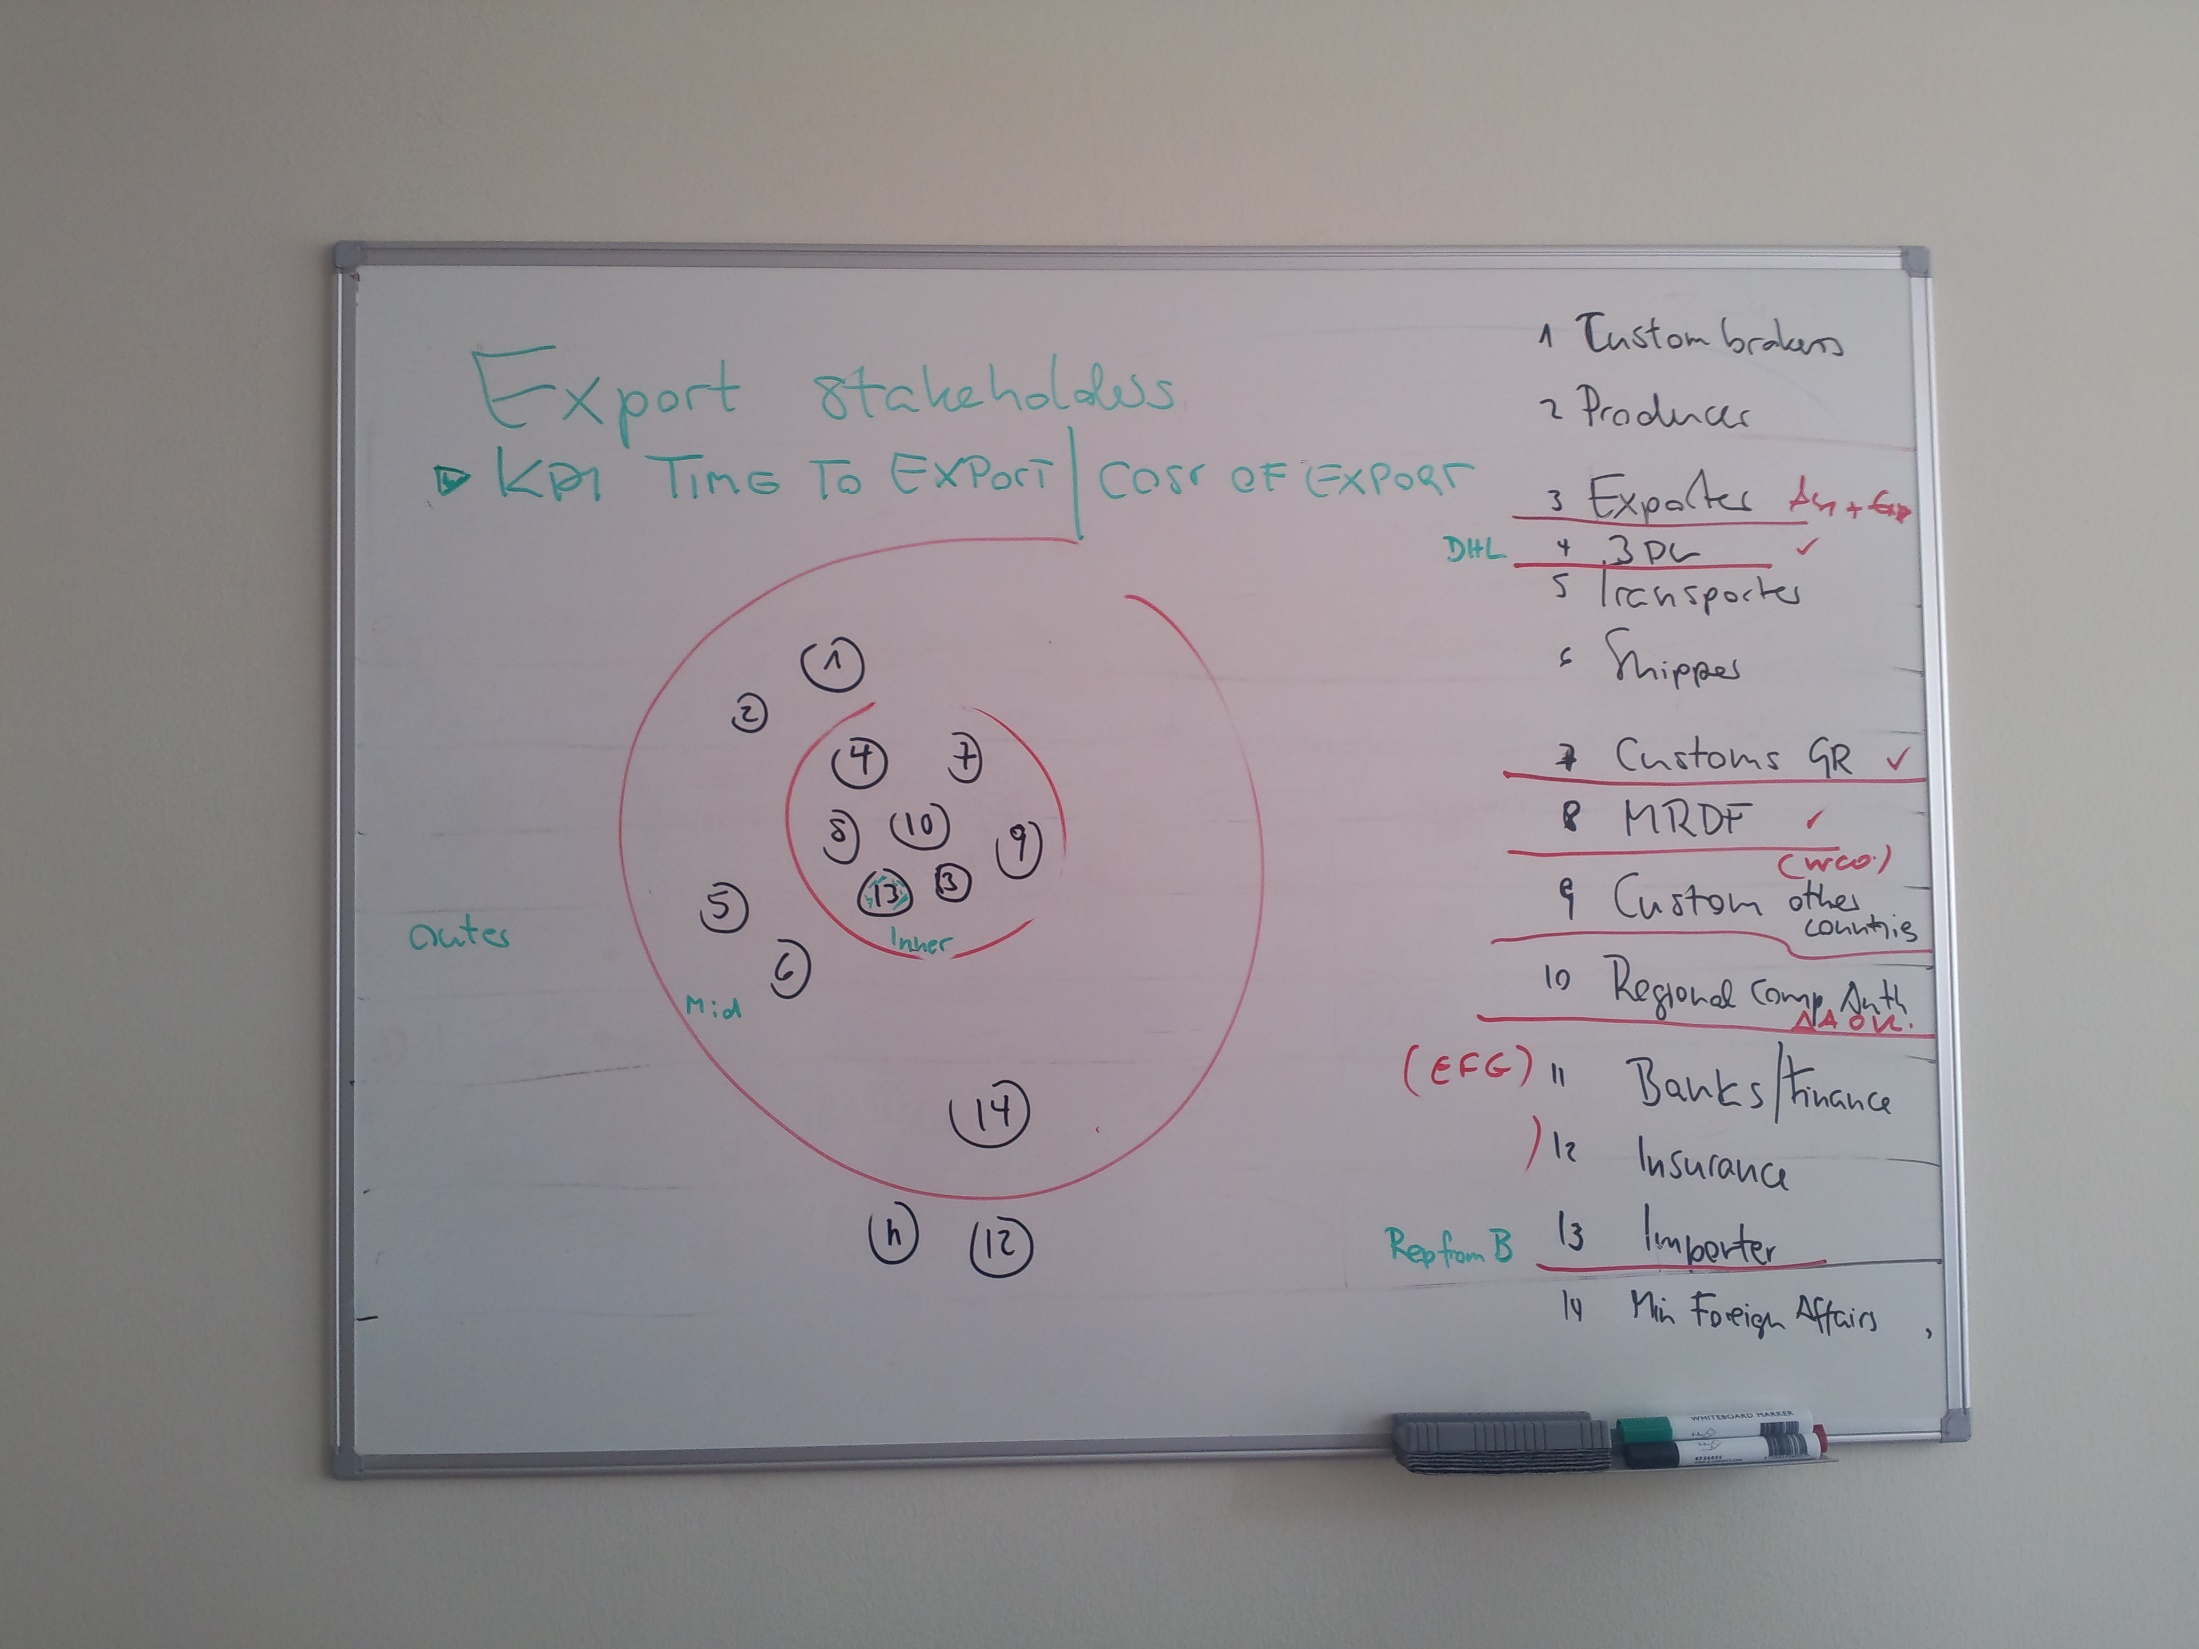 Export stakeholders
KPI TIME TO EXPORT | COST OF EXPORT
1
2
4
7
8
10
9
13
3
Inner
5
6
Mid
Outer
14
11
12
1 Custom brokers
2 Producer
3 Exporter
DHL 4 3PL ✓
5 Transporter
6 Shipper
7 Customs GR ✓
8 MRDF ✓
(WCO.)
9 Custom other
countries
10 Regional Comp. Auth
(EFG) 11 Banks/Finance
) 12 Insurance
Rep from B 13 Importer
14 Min Foreign Affairs
WHITEBOARD MARKER